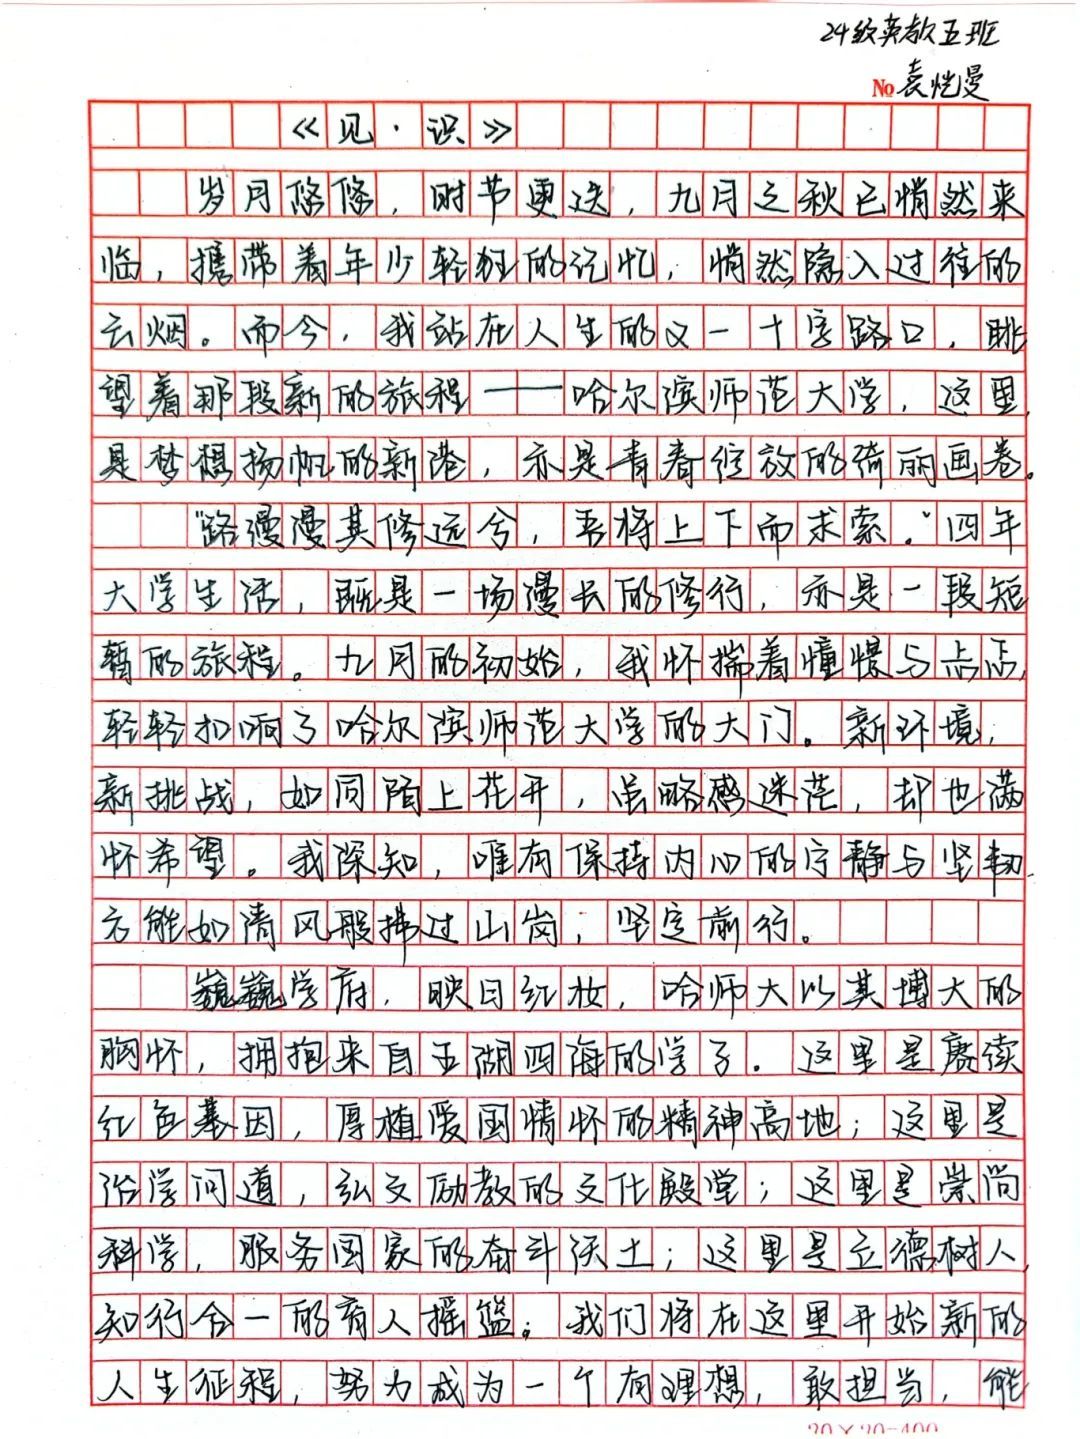 24级英教五班
№ 袁恺曼
《见·识》
岁月悠悠，时节更迭，九月之秋已悄然来
临，携带着年少轻狂的记忆，悄然隐入过往的
云烟。而今，我站在人生的又一十字路口，眺
望着那段新的旅程——哈尔滨师范大学，这里
是梦想扬帆的新港，亦是青春绽放的绮丽画卷。
"路漫漫其修远兮，吾将上下而求索。"四年
大学生活，既是一场漫长的修行，亦是一段短
暂的旅程。九月的初始，我怀揣着憧憬与忐忑，
轻轻扣响了哈尔滨师范大学的大门。新环境，
新挑战，如同陌上花开，虽略感迷茫，却也满
怀希望。我深知，唯有保持内心的宁静与坚韧，
方能如清风般拂过山岗，坚定前行。
巍巍学府，映日红妆，哈师大以其博大的
胸怀，拥抱来自五湖四海的学子。这里是赓续
红色基因，厚植爱国情怀的精神高地；这里是
治学问道，弘文励教的文化殿堂；这里是崇尚
科学，服务国家的奋斗沃土；这里是立德树人，
知行合一的育人摇篮。我们将在这里开始新的
人生征程，努力成为一个有理想，敢担当，能
20×20=400